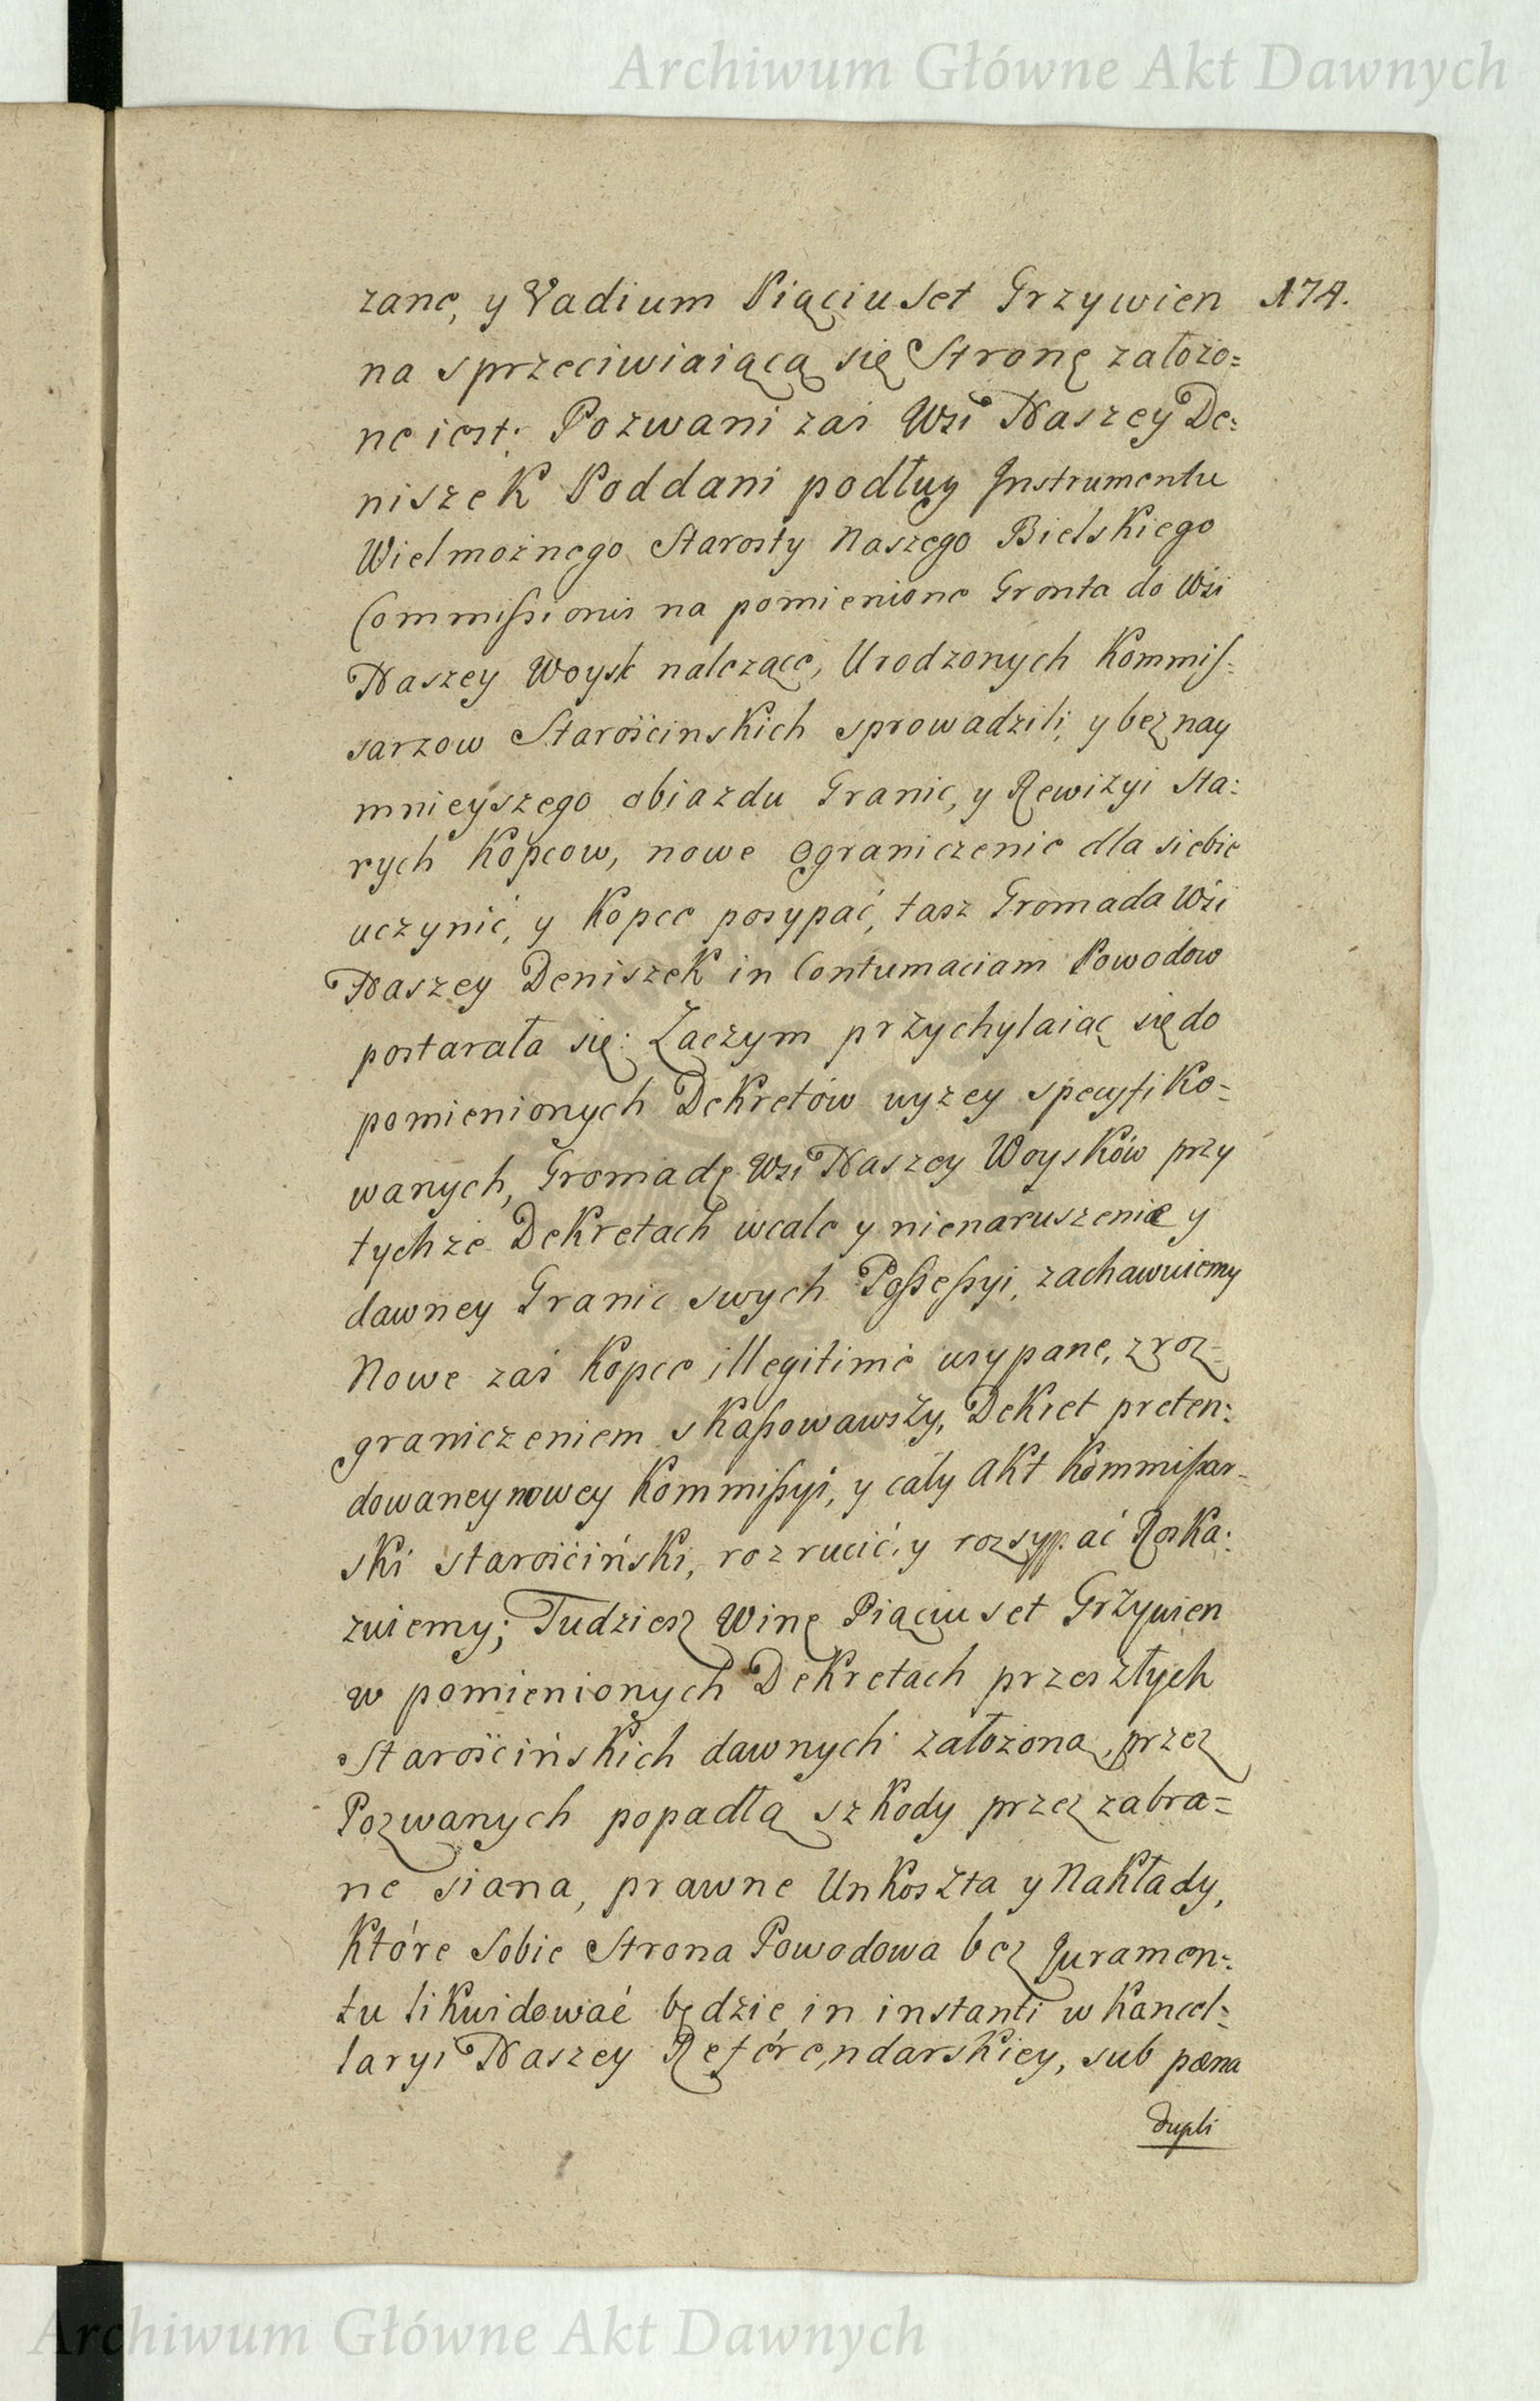 Archiwum Główne Akt Dawnych
zane, y Vadium Piąciuset Grzywien 174.
na sprzeciwiaiącą się Stronę założo=
ne iest: Pozwani zaś Wsi Naszey De=
niszek Poddani podług Instrumentu
Wielmożnego Starosty Naszego Bielskiego
Commissionis na pomienione Gronta do Wsi
Naszey Woysk nalezące, Urodzonych Kommis=
sarzow Starościnskich sprowadzili, y bez nay
mnieyszego obiazdu Granic, y Rewizyi Sta=
rych Kopcow, nowe Ograniczenie dla siebie
uczynić, y Kopce posypać, tasz Gromada Wsi
Naszey Deniszek in Contumaciam Powodow
postarała się: Zaczym przychylaiąc się do
pomienionych Dekretów wyzey specyfiko=
wanych, Gromadę Wsi Naszey Woysków przy
tychże Dekretach wcale y nienaruszenie y
dawney Granic swych Possessyi, zachawuiemy
Nowe zaś Kopce illegitimè usypane, z roz=
graniczeniem skassowawszy, Dekret preten=
dowaney nowey Kommissyi, y cały Akt Kommissar=
ski starościński, rozrucić, y rozsypać Roska=
zuiemy; Tudziesz Winę Piąciuset Grzywien
w pomienionych Dekretach przeszłych
Starościńskich dawnych założoną, przez
Pozwanych popadłą szkody przez zabra=
ne siana, prawne Unkoszta y Nakłady,
Które Sobie Strona Powodowa bez Juramen=
tu likwidować będzie in instanti w Kancel=
laryi Naszey Referendarskiey, sub pœna
dupli
Archiwum Główne Akt Dawnych